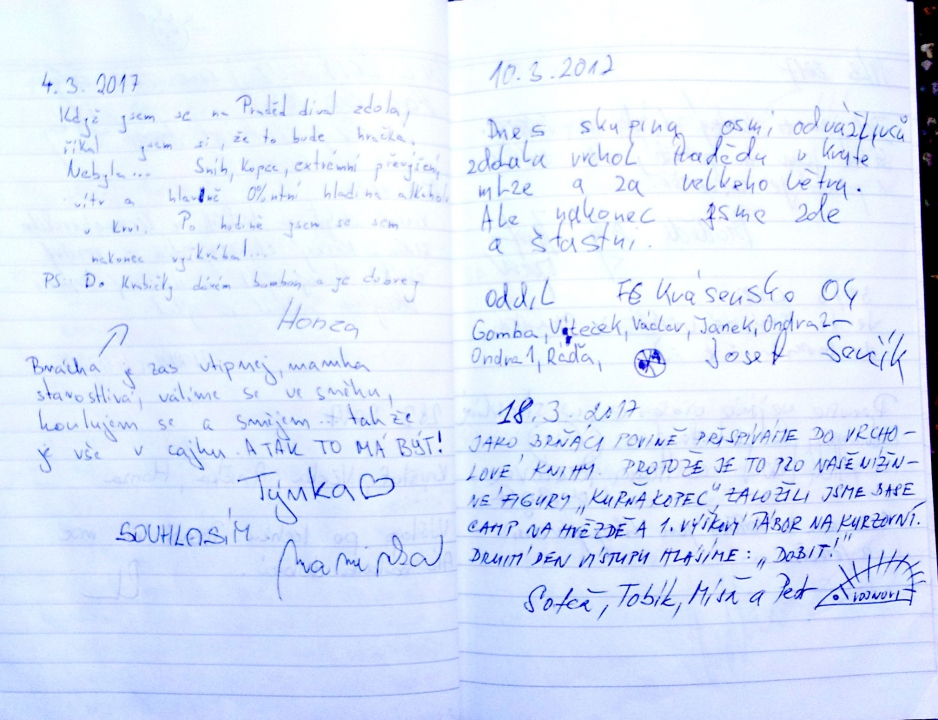 4. 3. 2017
Když jsem se na Praděd díval zdola,
říkal jsem si, že to bude hračka.
Nebyla... Sníh, kopec, extrémní převýšení,
vítr a hlavně 0%ntní hladina alkoholu
v krvi. Po hodině jsem se sem
nakonec vyškrábal...
PS: Do krabičky dávám bombon a je dobrej
Honza
Brácha je zas vtipnej, mamka
starostlivá, válíme se ve sněhu,
koulujem se a smějem. takže
je vše v cajku. A TAK TO MÁ BÝT!
Týnka
SOUHLASÍM
mamina
10. 3. 2017
Dnes skupina osmi odvážlivců
zdolala vrchol Pradědu v kruté
mlze a za velkeho větru.
Ale nakonec jsme zde
a šťastni.
oddíl Kvásensko 04
Gomba, Víteček, Václav, Janek, Ondra 2
Ondra 1, Ráďa, Josef Ševčík
18. 3. 2017
JAKO BRŇÁCI POVINĚ PŘISPÍVÁME DO VRCHO-
LOVÉ KNIHY. PROTOŽE JE TO PRO NAŠE NÍŽIN-
NÉ FIGURY „KURŇA KOPEC" ZALOŽILI JSME BASE
CAMP NA HVĚZDĚ A 1. VÝŠKOVÝ TÁBOR NA KURZOVNÍ.
DRUHÝ DEN VÝSTUPU HLÁSÍME: „DOBIT!"
Tobik, Míša a Petr